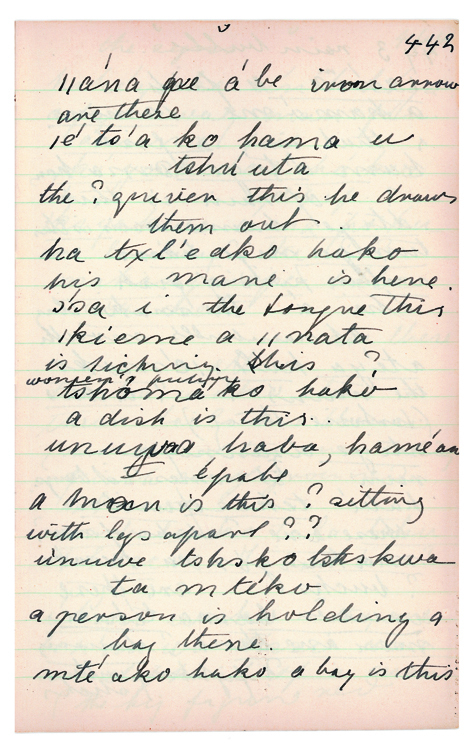 442
//ána que á be iron arrow
are there
ié to'a ko hama u
tshú uta
the ? quiver this he draws
them out.
ha txl'edko hako
his mane is here.
i the tongue this
/kieme a //nata
is licking. this ?
women? 
tshoma ko hakò
a dish is this.
haba, haméan
épabe
a man is this ? sitting
with legs apart ??
ùnuwe tshsko tshskwa
ta mtéko
a person is holding a
bag there.
mté ako hako a bag is this